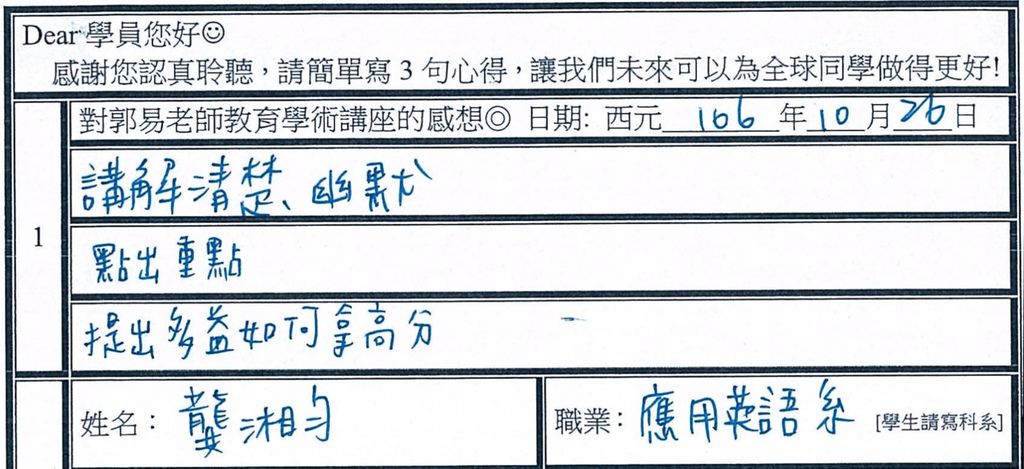 Dear 學員您好☺
感謝您認真聆聽，請簡單寫 3 句心得，讓我們未來可以為全球同學做得更好!
對郭易老師教育學術講座的感想◎ 日期: 西元 106 年 10 月 26 日
講解清楚、幽默
1
點出重點
提出多益如何拿高分
姓名： 龔湘勻 職業： 應用英語系 [學生請寫科系]